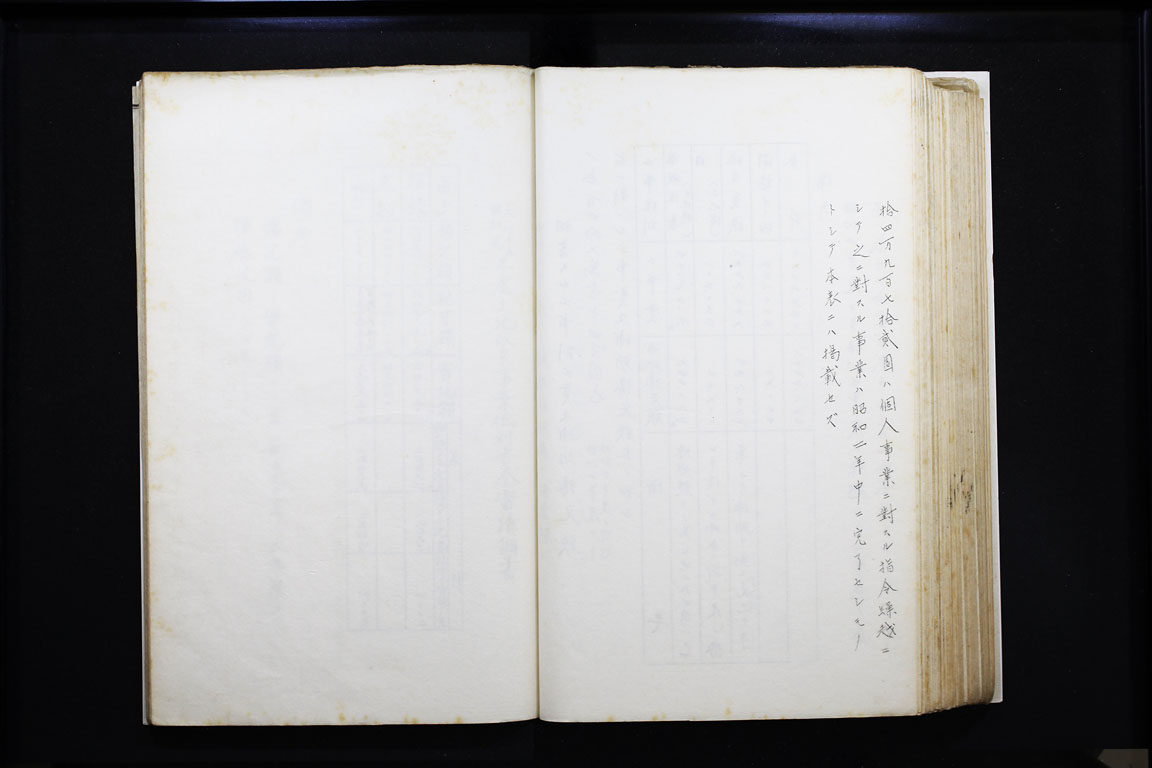 拾四万九百七拾貳圓ハ個人事業ニ對スル指令繰越ニ
シテ之ニ對スル事業ハ昭和二年中ニ完了セシモノ
トシテ本表ニハ掲載セズ